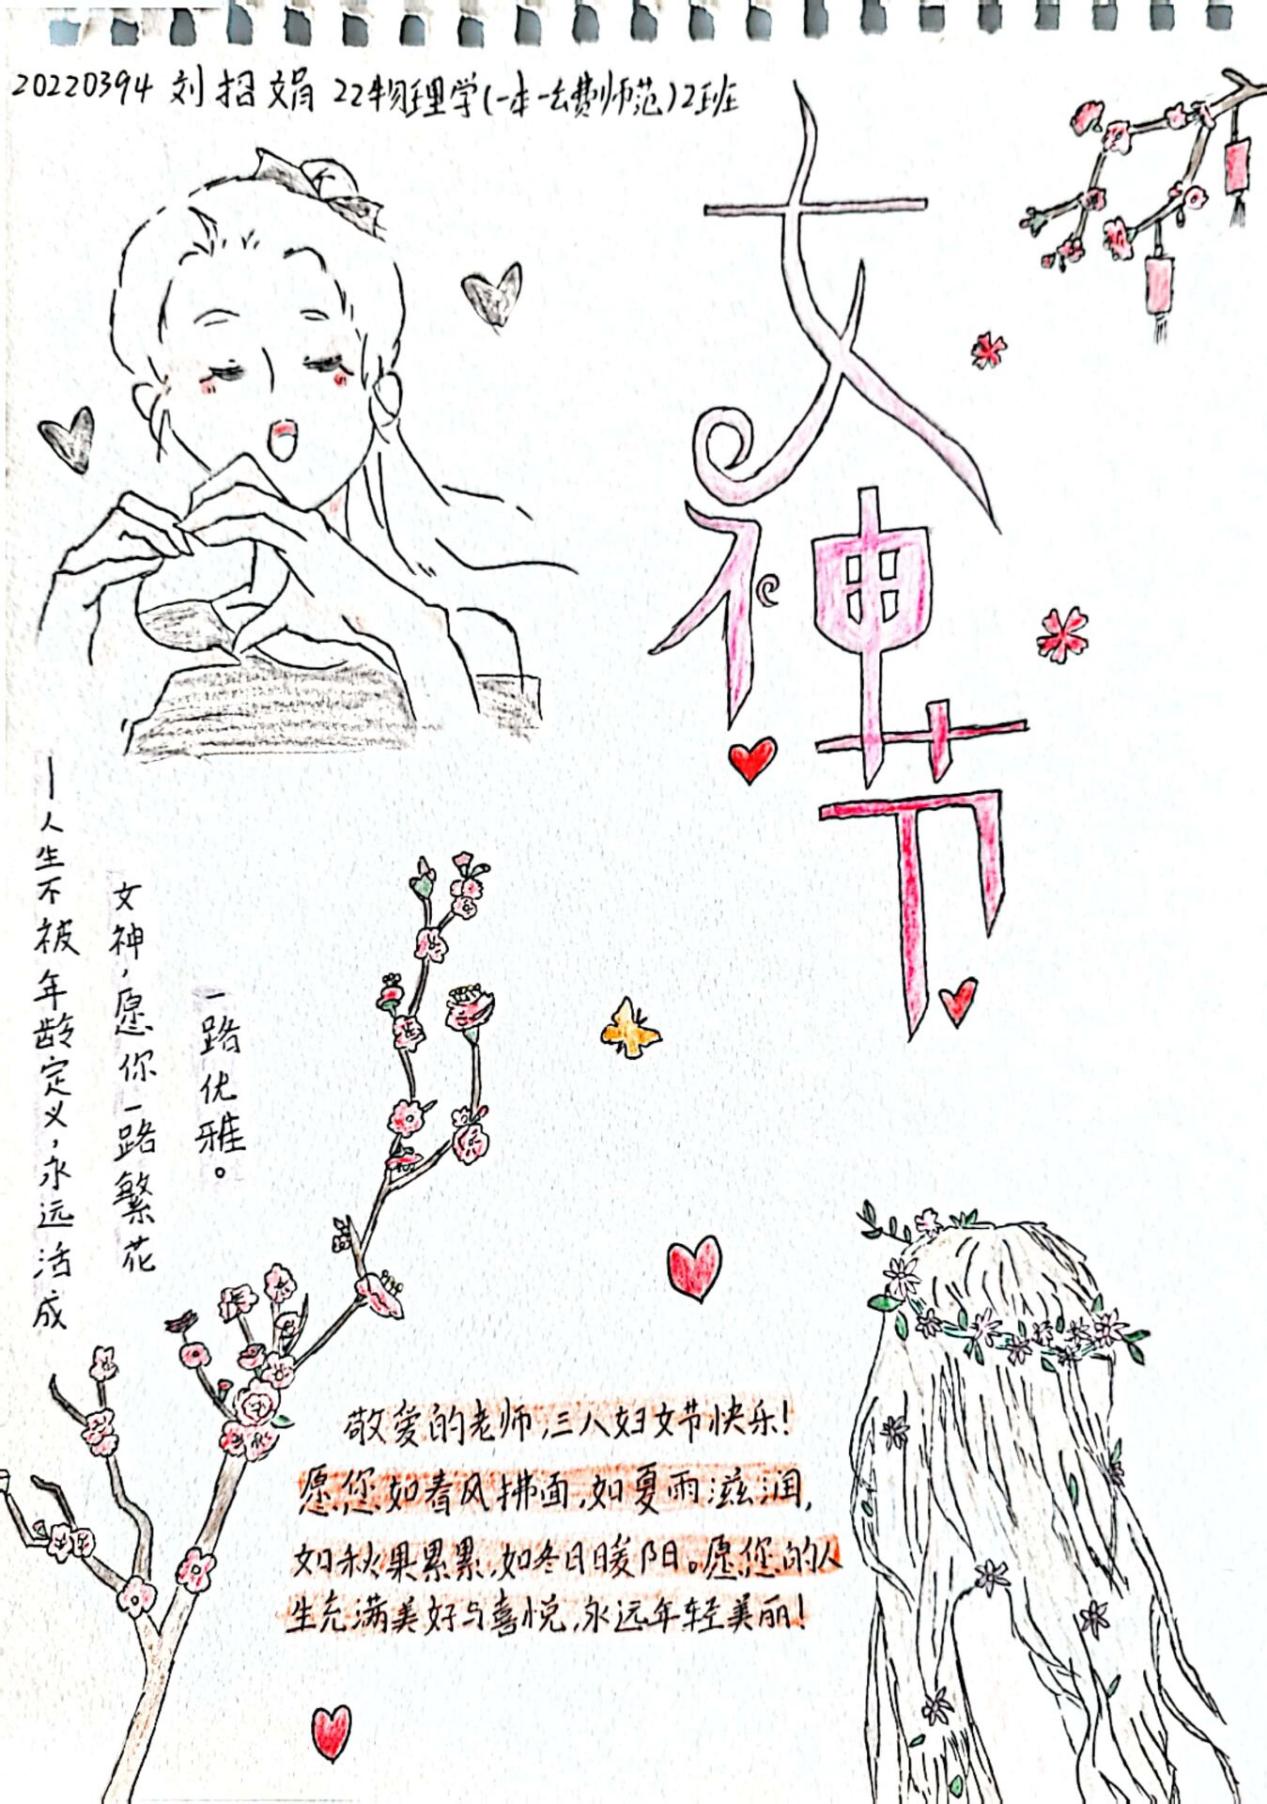 20220394 刘招娟 22物理学(一本一公费师范)2班
女神节
—人生不被年龄定义,永远活成
女神,愿你一路繁花
一路优雅。
敬爱的老师,三八妇女节快乐!
愿您如春风拂面,如夏雨滋润,
如秋果累累,如冬日暖阳。愿您的人
生充满美好与喜悦,永远年轻美丽!